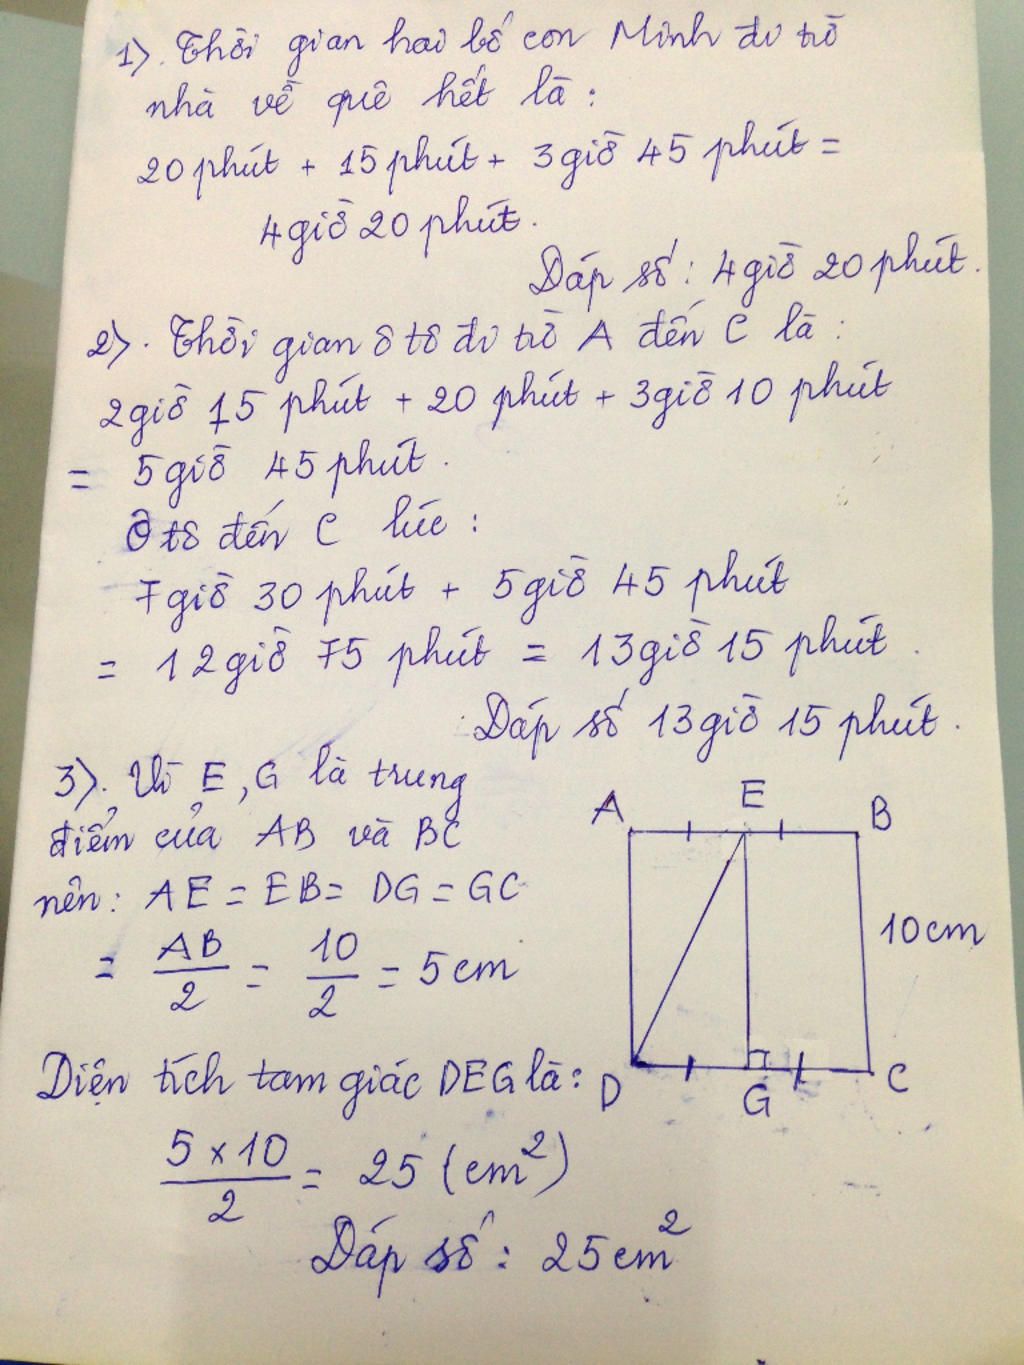 1). Thời gian hai bố con Minh đi từ
nhà về quê hết là :
20 phút + 15 phút + 3 giờ 45 phút =
4 giờ 20 phút.
Đáp số : 4 giờ 20 phút.
2). Thời gian ô tô đi từ A đến C là :
2 giờ 15 phút + 20 phút + 3 giờ 10 phút
= 5 giờ 45 phút.
Ô tô đến C lúc :
7 giờ 30 phút + 5 giờ 45 phút
= 12 giờ 75 phút = 13 giờ 15 phút.
Đáp số 13 giờ 15 phút.
3). Vì E, G là trung
điểm của AB và BC
nên: AE = EB = DG = GC
= AB/2 = 10/2 = 5 cm
A E B
10 cm
D G C
Diện tích tam giác DEG là:
5 x 10 / 2 = 25 (cm²)
Đáp số : 25 cm²